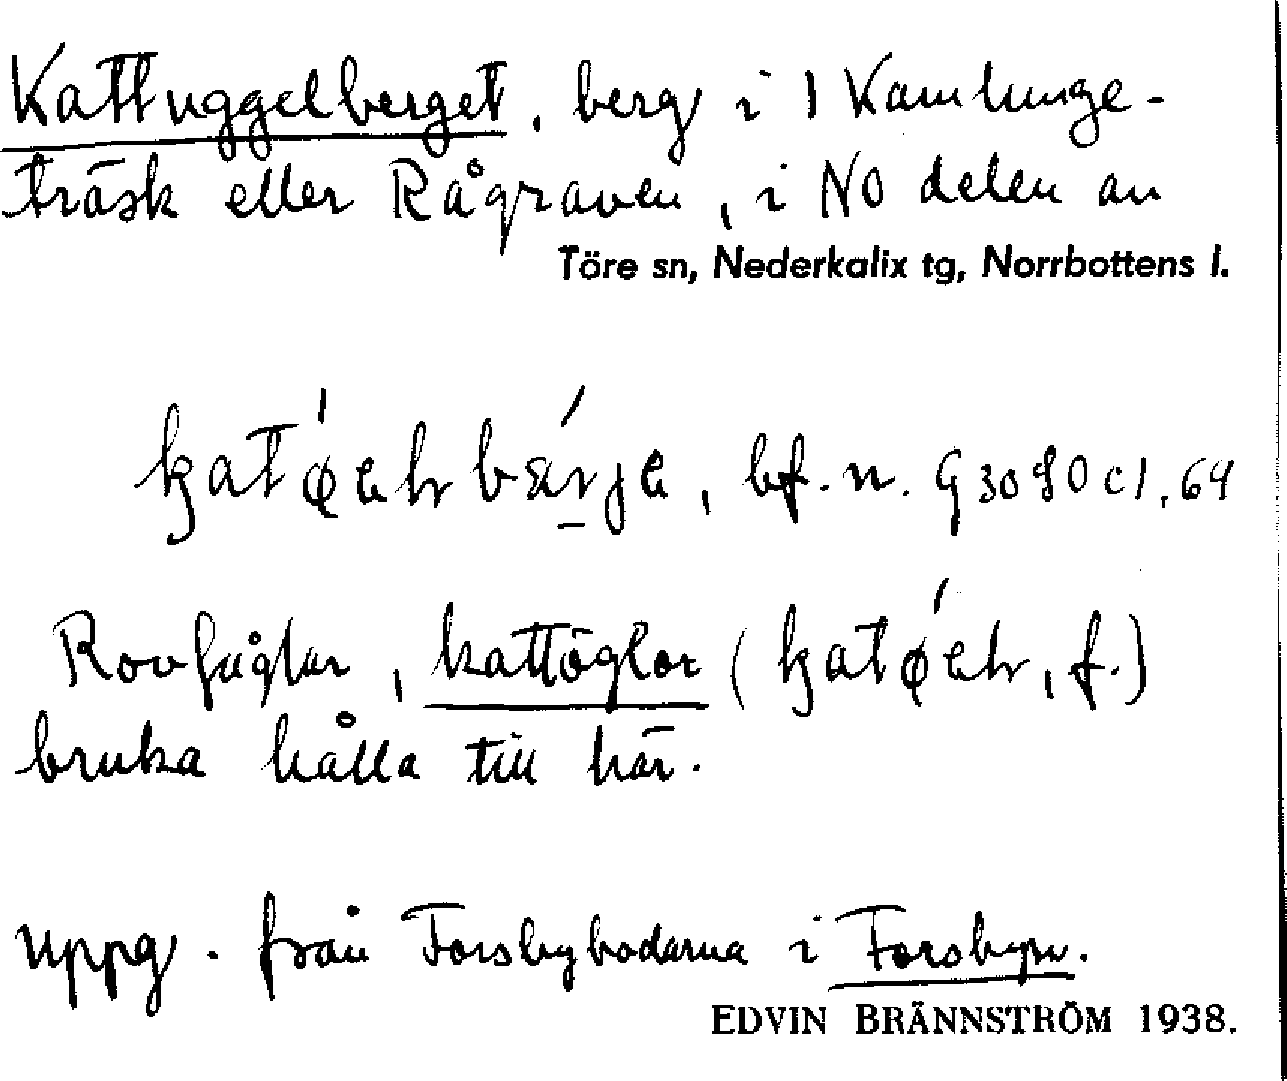 Kattuggelberget, berg i 1 Kamlunge-
träsk eller Rågraven, i NO delen av
Töre sn, Nederkalix tg, Norrbottens l.
bf. n.
Rovfåglar, kattöglor ( f.)
bruka hålla till här.
Uppg. från Forsbybodarna i Forsbyn.
EDVIN BRÄNNSTRÖM 1938.